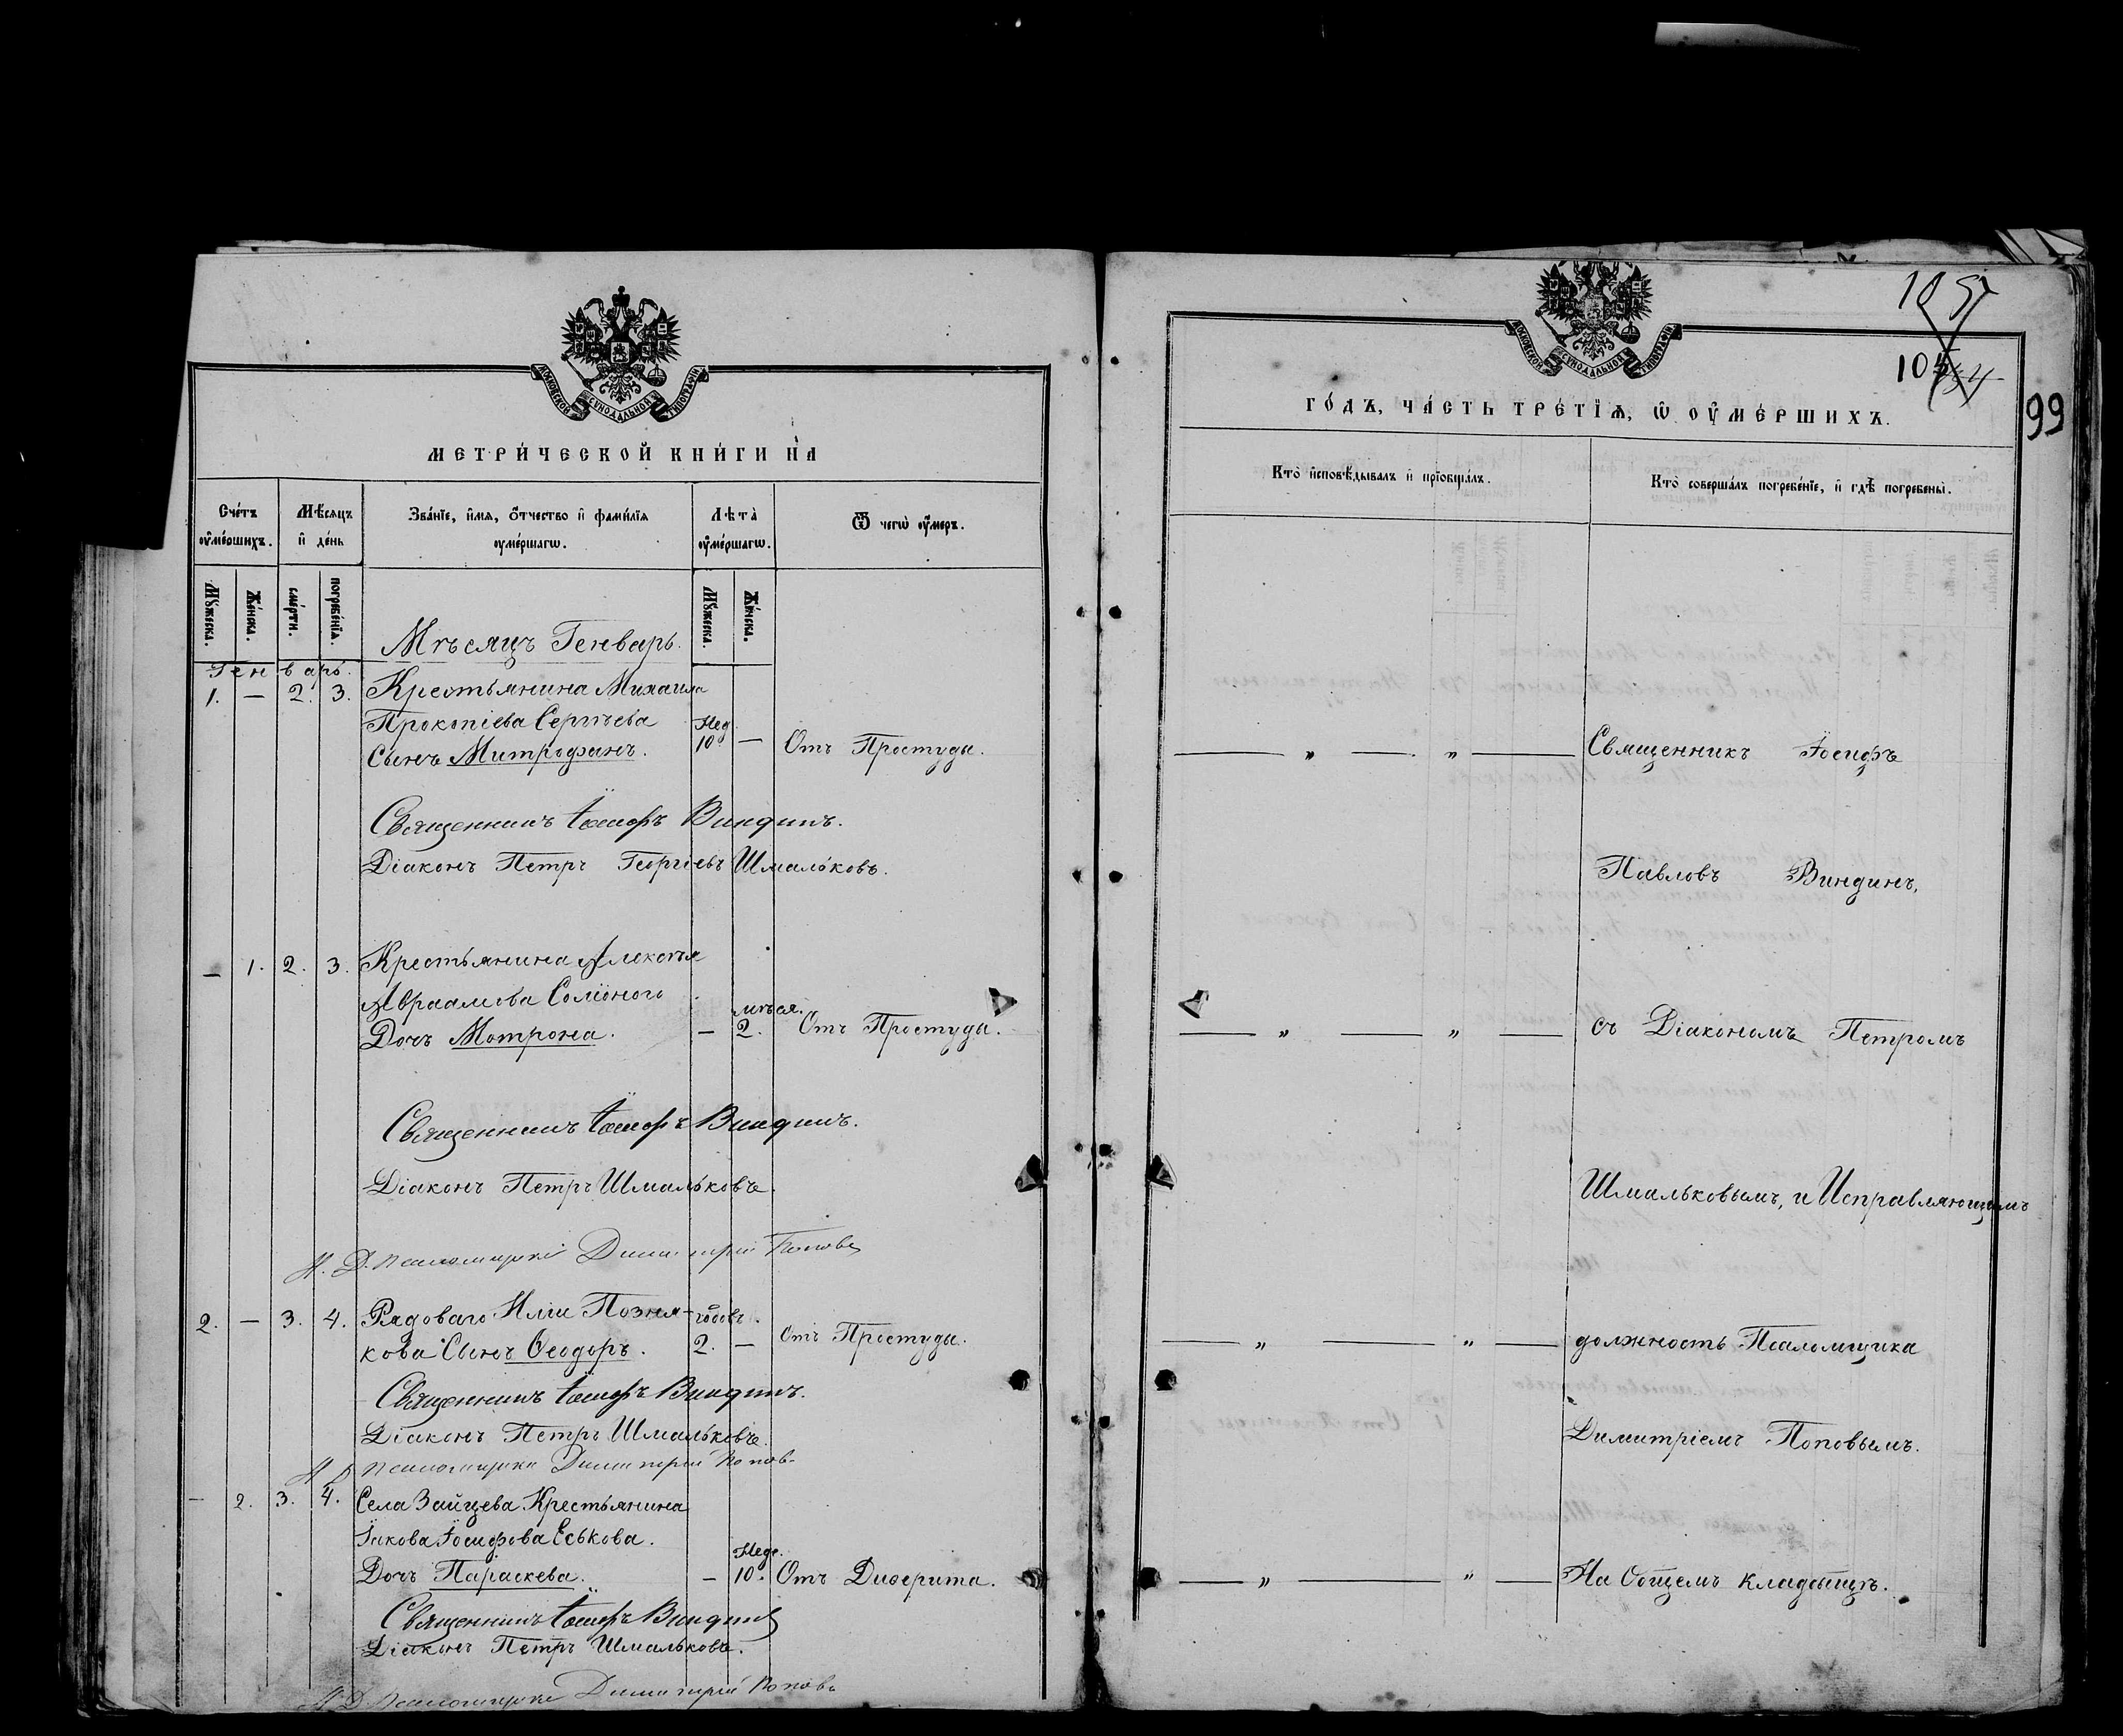 МОСКОВСКОЙ СѴНОДАЛЬНОЙ ТИПОГРАФІИ
МЕТРИ́ЧЕСКОЙ КНИ́ГИ НА̀
Сче́тъ ᲂу҆ме́ршихъ.
Мѣ́сѧцъ и҆ де́нь
Зва́нїе, и҆́мѧ, ѻ҆́тчество и҆ фами́лїѧ ᲂу҆ме́ршагѡ.
Лѣ́та ᲂу҆ме́ршагѡ.
Ѿ чегѡ̀ ᲂу҆́меръ.
Мꙋ́жеска.
Же́нска.
сме́рти.
погребе́нїѧ.
Мꙋ́жеска.
Же́нска.
Мѣсяцъ Генварь.
Генварь.
1. — 2. 3. Крестьянина Михаила
Прокопіева Сергѣева Нед.
Сынъ Митрофанъ. 10. — Отъ Простуды.
Священникъ Іосифъ Виндинъ.
Діаконъ Петръ Георгіевъ Шмальковъ.
— 1. 2. 3. Крестьянина Алексѣя
Авраамова Солёного мѣся.
Дочь Мотрона. — 2. Отъ Простуды.
Священникъ Іосифъ Виндинъ.
Діаконъ Петръ Шмальковъ.
И. Д. Псаломщика Димитрій Поповъ
2. — 3. 4. Рядоваго Иліи Позня- годовъ.
кова Сынъ Ѳеодоръ. 2. — Отъ Простуды.
Священникъ Іосифъ Виндинъ.
Діаконъ Петръ Шмальковъ.
И Д Псаломщика Димитрій Попов-
— 2. 3. 4. Села Зайцева Крестьянина
Іакова Іосифова Еськова. Неде.
Дочь Параскева. — 10. Отъ Диѳерита.
Священникъ Іосифъ Виндинъ
Діаконъ Петръ Шмальковъ.
И. Д. Псаломщика Димитрій Поповъ
МОСКОВСКОЙ СѴНОДАЛЬНОЙ ТИПОГРАФІИ
99
ГО́ДЪ, ЧА́СТЬ ТРЕ́ТЇѦ, Ѡ҆ ОУ҆МЕ́РШИХЪ.
Кто̀ и҆сповѣ́дывалъ и҆ прїѡбща́лъ.
Кто̀ соверша́лъ погребе́нїе, и҆ гдѣ̀ погребены̀.
— „ — „ — Священникъ Іосифъ
Павловъ Виндинъ,
— „ — „ — съ Діакономъ Петромъ
Шмальковымъ, и Исправляющимъ
— „ — „ — должность Псаломщика
Димитріемъ Поповымъ.
— „ — „ — На Общемъ кладбищѣ.